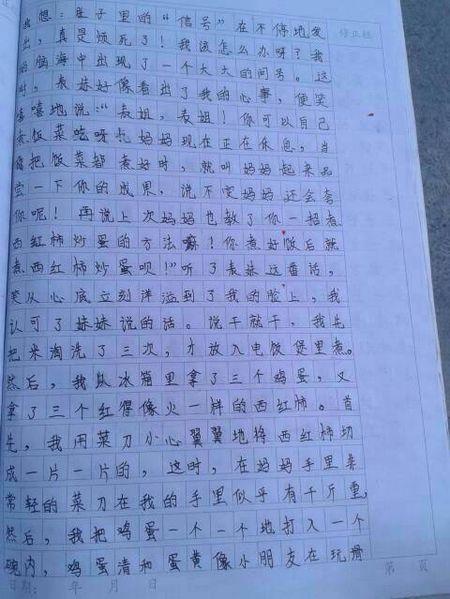 我想：肚子里的“信号”在不停地发
出，真是烦死了！我该怎么办呀？我
的脑海中出现了一个大大的问号。这
时，表妹好像看出了我的心事，便笑
嘻嘻地说：“表姐，表姐！你可以自己
煮饭菜吃呀！妈妈现在正在休息，当
你把饭菜都煮好时，就叫妈妈起来品
尝一下你的成果，说不定妈妈还会夸
你呢！再说上次妈妈也教了你一招煮
西红柿炒蛋的方法嘛！你煮好饭后就
煮西红柿炒蛋呗！”听了表妹这番话，
笑从心底立刻洋溢到了我的脸上，我
认可了妹妹说的话。说干就干，我先
把米淘洗了三次，才放入电饭煲里煮。
然后，我从冰箱里拿了三个鸡蛋，又
拿了三个红得像火一样的西红柿。首
先，我用菜刀小心翼翼地将西红柿切
成一片一片的，这时，在妈妈手里来
常轻的菜刀在我的手里似乎有千斤重，
然后，我把鸡蛋一个一个地打入一个
碗内，鸡蛋清和蛋黄像小朋友在玩滑
修正栏
日期： 年 月 日
第 页